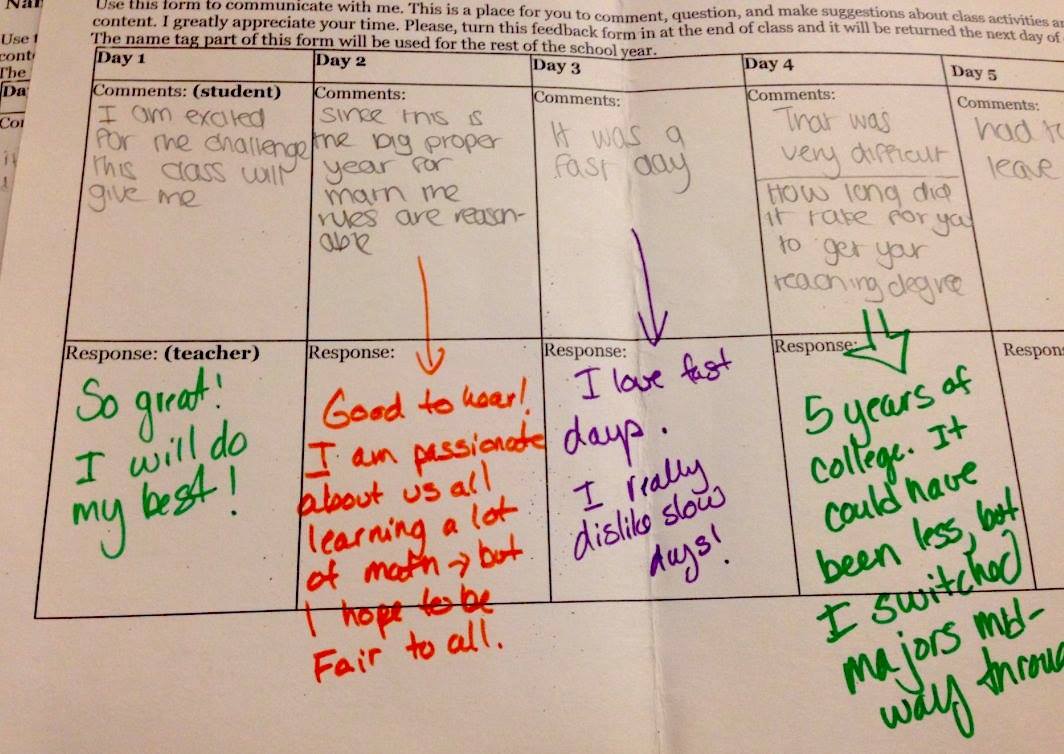 Nar
Use this form to communicate with me. This is a place for you to comment, question, and make suggestions about class activities
content. I greatly appreciate your time. Please, turn this feedback form in at the end of class and it will be returned the next day of
The name tag part of this form will be used for the rest of the school year.
Use
cont
The
Da
Day 1
Comments: (student)
I am excited
for the challenge
this class will
give me
Response: (teacher)
So great!
I will do
my best!
Day 2
Comments:
since this is
the big proper
year for
math the
rules are reason-
able
Response:
Good to hear!
I am passionate
about us all
learning a lot
of math → but
I hope to be
Fair to all.
Day 3
Comments:
It was a
fast day
Response:
I love fast
days.
I really
dislike slow
days!
Day 4
Comments:
That was
very difficult
How long did
it take for you
to get your
teaching degree
Response:
5 years of
college. It
could have
been less, but
I switched
majors mid-
way throu
Day 5
Comments:
had t
leave
Respon